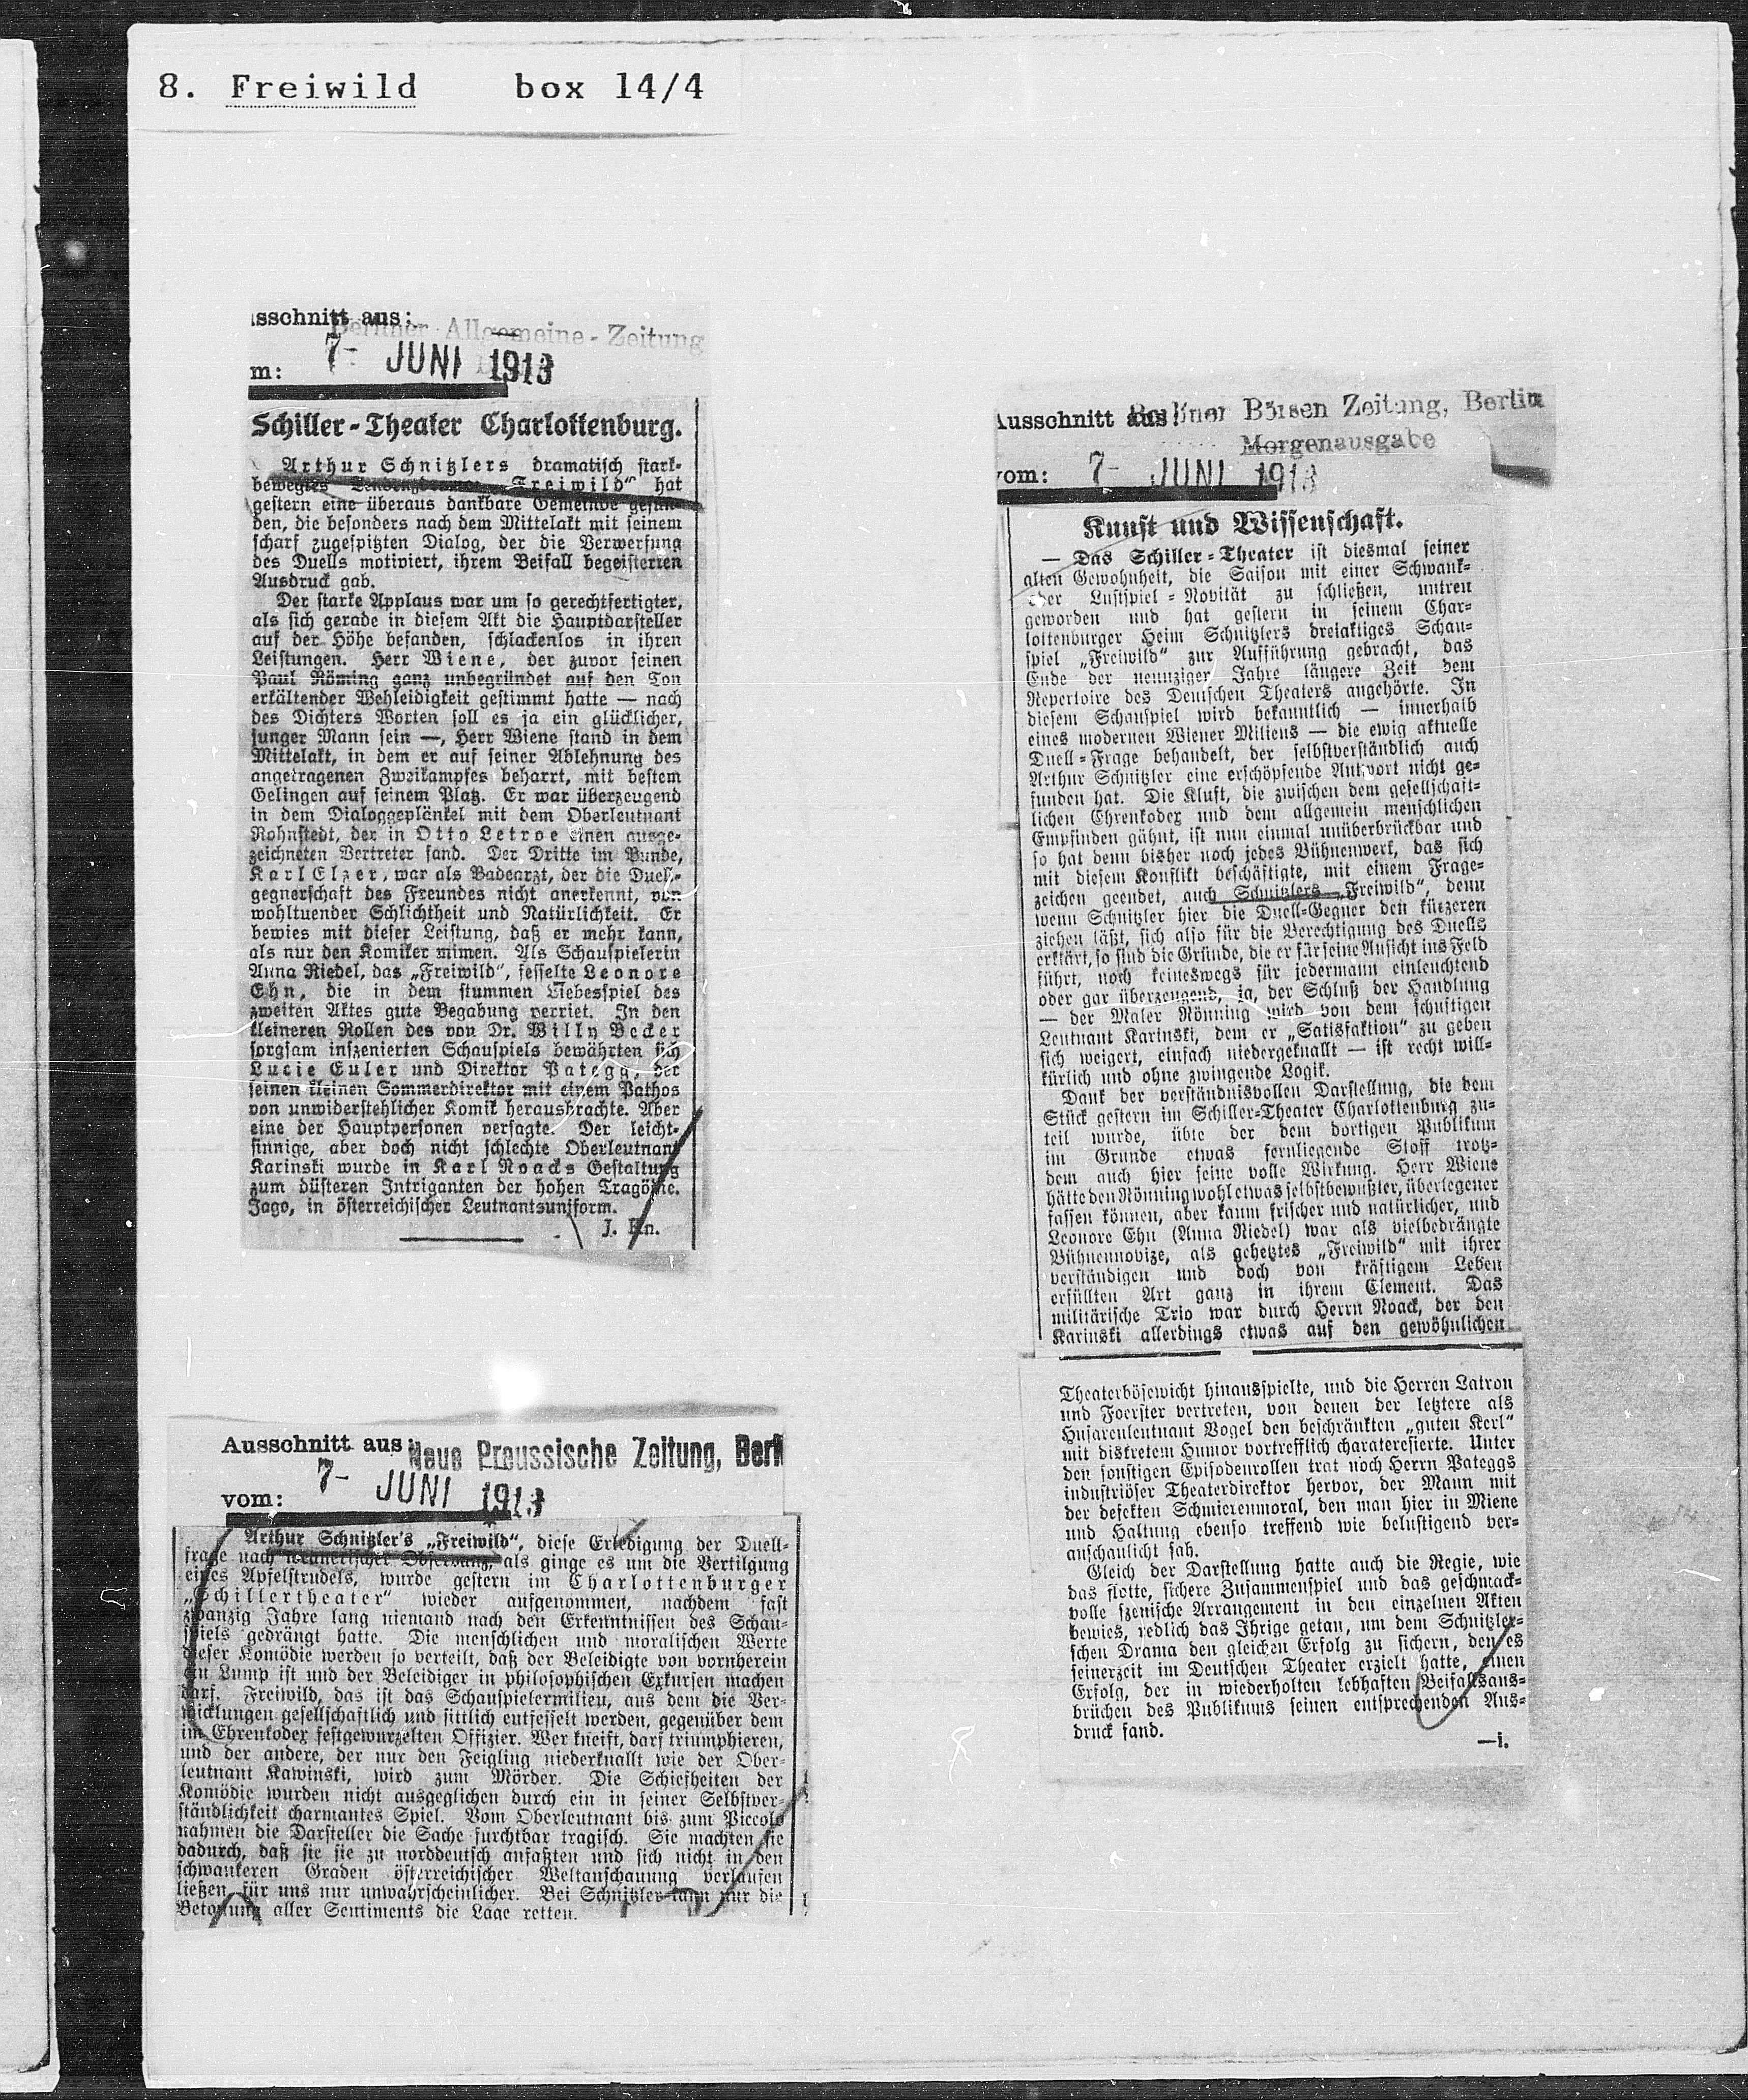 8. Freiwild box 14/4
usschnitt aus:
Berliner Allgemeine-Zeitung
7- JUNI 1913
m:
Schiller-Theater Charlottenburg.
Arthur Schnitzlers dramatisch stark-
bewegtes Freiwild“ hat
gestern eine überaus dankbare Gemeinde gefun-
den, die besonders nach dem Mittelakt mit seinem
scharf zugespitzten Dialog, der die Verwerfung
des Duells motiviert, ihrem Beifall begeisterten
Ausdruck gab.
Der starke Applaus war um so gerechtfertigter,
als sich gerade in diesem Akt die Hauptdarsteller
auf der Höhe befanden, schlackenlos in ihren
Leistungen. Herr Wiene, der zuvor seinen
Paul Röming ganz unbegründet auf den Ton
erkältender Wehleidigkeit gestimmt hatte — nach
des Dichters Worten soll es ja ein glücklicher,
junger Mann sein —, Herr Wiene stand in dem
Mittelakt, in dem er auf seiner Ablehnung des
angetragenen Zweikampfes beharrt, mit bestem
Gelingen auf seinem Platz. Er war überzeugend
in dem Dialoggeplänkel mit dem Oberleutnant
Rohnstedt, der in Otto Letroe einen ausge-
zeichneten Vertreter fand. Der Dritte im Bunde,
Karl Elzer, war als Badearzt, der die Duell-
gegnerschaft des Freundes nicht anerkennt, von
wohltuender Schlichtheit und Natürlichkeit. Er
bewies mit dieser Leistung, daß er mehr kann,
als nur den Komiker mimen. Als Schauspielerin
Anna Riedel, das „Freiwild“, fesselte Leonore
Ehn, die in dem stummen Liebesspiel des
zweiten Aktes gute Begabung verriet. In den
kleineren Rollen des von Dr. Willy Becker
sorgsam inszenierten Schauspiels bewährten sich
Lucie Euler und Direktor Pategg, der
seinen kleinen Sommerdirektor mit einem Pathos
von unwiderstehlicher Komik herausbrachte. Aber
eine der Hauptpersonen versagte. Der leicht-
sinnige, aber doch nicht schlechte Oberleutnant
Karinski wurde in Karl Noacks Gestaltung
zum düsteren Intriganten der hohen Tragödie.
Jago, in österreichischer Leutnantsuniform.
J. Kn.
Ausschnitt aus:
Neue Preussische Zeitung, Berl
7- JUNI 1913
vom:
Arthur Schnitzler's „Freiwild“, diese Erledigung der Duell-
frage nach als ginge es um die Vertilgung
eines Apfelstrudels, wurde gestern im Charlottenburger
„Schillertheater“ wieder aufgenommen, nachdem fast
zwanzig Jahre lang niemand nach den Erkenntnissen des Schau-
spiels gedrängt hatte. Die menschlichen und moralischen Werte
dieser Komödie werden so verteilt, daß der Beleidigte von vornherein
ein Lump ist und der Beleidiger in philosophischen Exkursen machen
darf. Freiwild, das ist das Schauspielermilieu, aus dem die Ver-
wicklungen gesellschaftlich und sittlich entfesselt werden, gegenüber dem
im Ehrenkodex festgewurzelten Offizier. Wer kneift, darf triumphieren,
und der andere, der nur den Feigling niederknallt wie der Ober-
leutnant Kawinski, wird zum Mörder. Die Schiefheiten der
Komödie wurden nicht ausgeglichen durch ein in seiner Selbstver-
ständlichkeit charmantes Spiel. Vom Oberleutnant bis zum Piccolo
nahmen die Darsteller die Sache furchtbar tragisch. Sie machten sie
dadurch, daß sie sie zu norddeutsch anfaßten und sich nicht in den
schwankeren Graden österreichischer Weltanschauung verlaufen
ließen, für uns nur unwahrscheinlicher. Bei Schnitzler kann nur die
Betonung aller Sentiments die Lage retten.
Ausschnitt aus:
Berliner Börsen Zeitung, Berlin
Morgenausgabe
vom: 7- JUNI 1913
Kunst und Wissenschaft.
— Das Schiller-Theater ist diesmal seiner
alten Gewohnheit, die Saison mit einer Schwank-
oder Lustspiel-Novität zu schließen, untreu
geworden und hat gestern in seinem Char-
lottenburger Heim Schnitzlers dreiaktiges Schau-
spiel „Freiwild“ zur Aufführung gebracht, das
Ende der neunziger Jahre längere Zeit dem
Repertoire des Deutschen Theaters angehörte. In
diesem Schauspiel wird bekanntlich — innerhalb
eines modernen Wiener Milieus — die ewig aktuelle
Duell-Frage behandelt, der selbstverständlich auch
Arthur Schnitzler eine erschöpfende Antwort nicht ge-
funden hat. Die Kluft, die zwischen dem gesellschaft-
lichen Ehrenkodex und dem allgemein menschlichen
Empfinden gähnt, ist nun einmal unüberbrückbar und
so hat denn bisher noch jedes Bühnenwerk, das sich
mit diesem Konflikt beschäftigte, mit einem Frage-
zeichen geendet, auch Schnitzlers „Freiwild“, denn
wenn Schnitzler hier die Duell-Gegner den kürzeren
ziehen läßt, sich also für die Berechtigung des Duells
erklärt, so sind die Gründe, die er für seine Ansicht ins Feld
führt, noch keineswegs für jedermann einleuchtend
oder gar überzeugend, ja, der Schluß der Handlung
— der Maler Rönning wird von dem schuftigen
Leutnant Karinski, dem er „Satisfaktion“ zu geben
sich weigert, einfach niedergeknallt — ist recht will-
kürlich und ohne zwingende Logik.
Dank der verständnisvollen Darstellung, die dem
Stück gestern im Schiller-Theater Charlottenburg zu-
teil wurde, übte der dem dortigen Publikum
im Grunde etwas fernliegende Stoff trotz-
dem auch hier seine volle Wirkung. Herr Wiene
hätte den Rönning wohl etwas selbstbewußter, überlegener
fassen können, aber kaum frischer und natürlicher, und
Leonore Ehn (Anna Riedel) war als vielbedrängte
Bühnennovize, als gehetztes „Freiwild“ mit ihrer
verständigen und doch von kräftigem Leben
erfüllten Art ganz in ihrem Element. Das
militärische Trio war durch Herrn Noack, der den
Karinski allerdings etwas auf den gewöhnlichen
Theaterbösewicht hinausspielte, und die Herren Latron
und Foerster vertreten, von denen der letztere als
Husarenleutnant Vogel den beschränkten „guten Kerl“
mit diskretem Humor vortrefflich charateresierte. Unter
den sonstigen Episodenrollen trat noch Herrn Pateggs
industriöser Theaterdirektor hervor, der Mann mit
der defekten Schmierenmoral, den man hier in Miene
und Haltung ebenso treffend wie belustigend ver-
anschaulicht sah.
Gleich der Darstellung hatte auch die Regie, wie
das flotte, sichere Zusammenspiel und das geschmack-
volle szenische Arrangement in den einzelnen Akten
bewies, redlich das Ihrige getan, um dem Schnitzler-
schen Drama den gleichen Erfolg zu sichern, den es
seinerzeit im Deutschen Theater erzielt hatte, einen
Erfolg, der in wiederholten lebhaften Beifallsaus-
brüchen des Publikums seinen entsprechenden Aus-
druck fand.
—i.
8